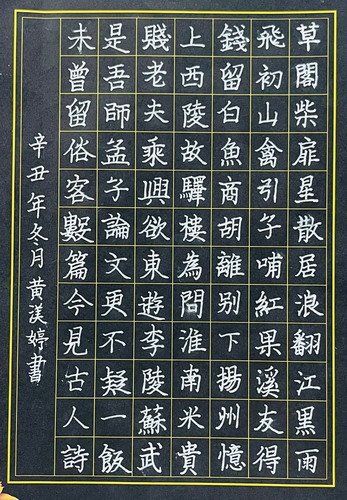 草閣柴扉星散居浪翻江黑雨
飛初山禽引子哺紅果溪友得
錢留白魚商胡離別下揚州憶
上西陵故驛樓為問淮南米貴
賤老夫乘興欲東遊李陵蘇武
是吾師孟子論文更不疑一飯
未曾留俗客數篇今見古人詩
辛丑年冬月黃渼婷書